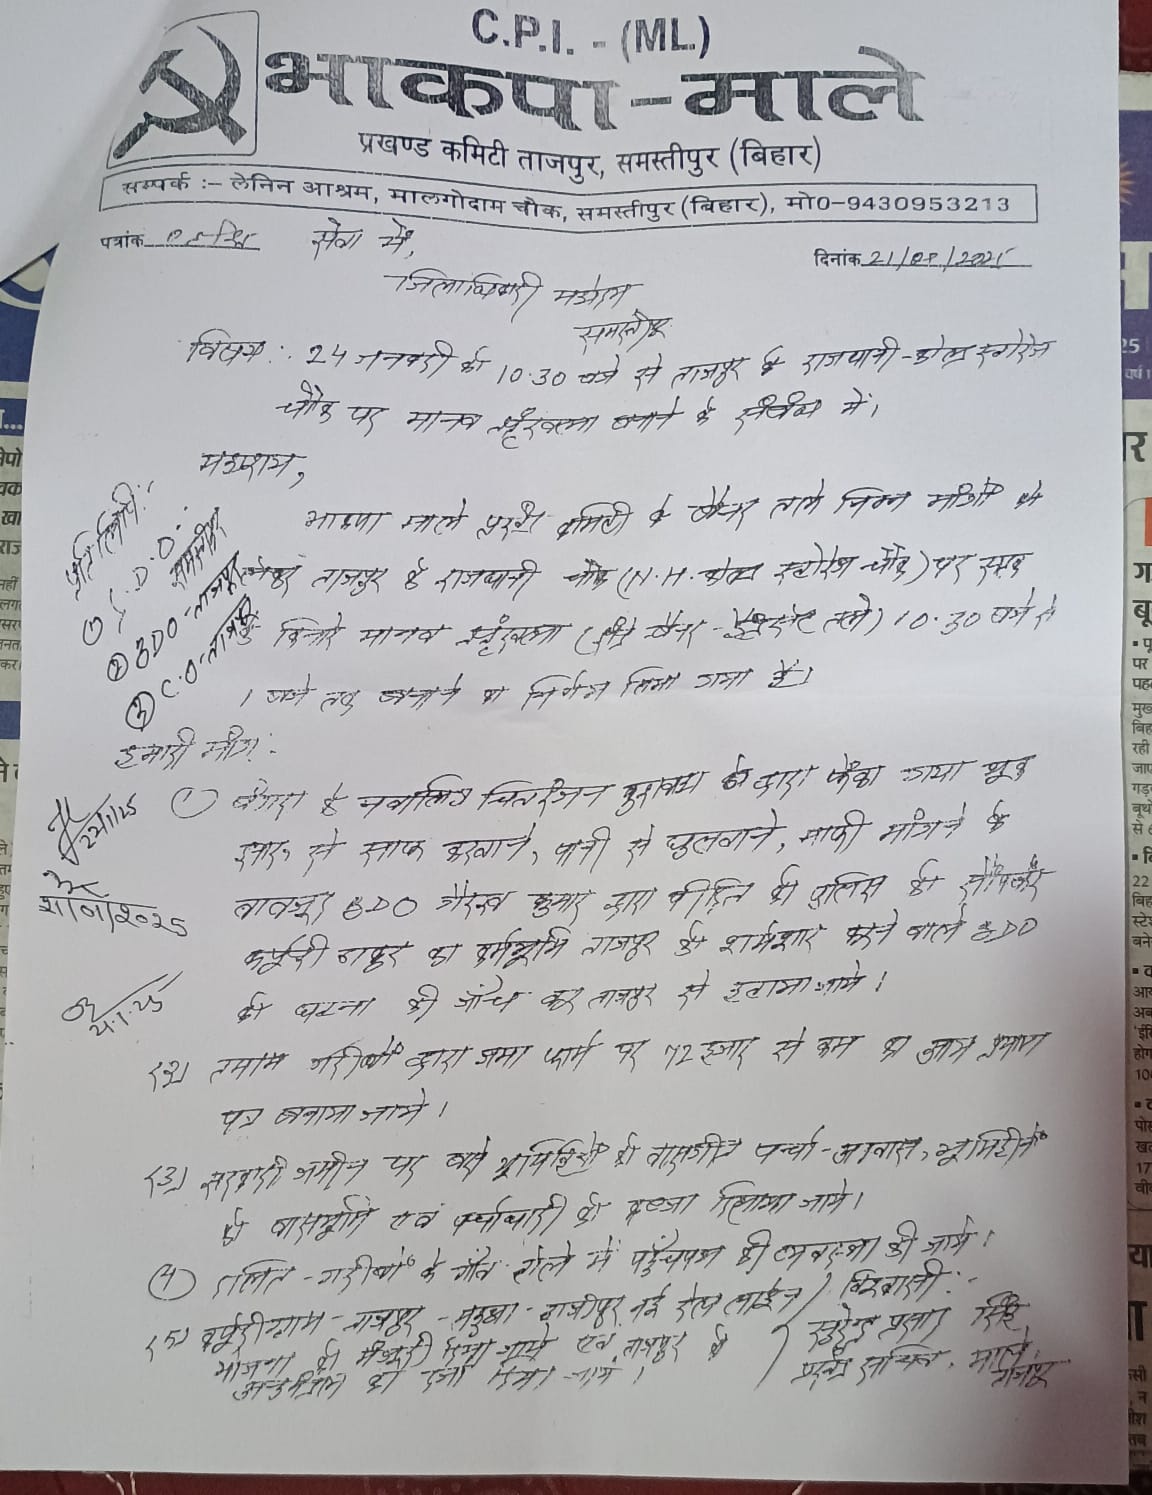 C.P.I. - (ML)
भाकपा-माले
प्रखण्ड कमिटी ताजपुर, समस्तीपुर (बिहार)
सम्पर्क :- लेनिन आश्रम, मालगोदाम चौक, समस्तीपुर (बिहार), मो0-9430953213
पत्रांक
दिनांक 21/01/2025
सेवा में,
जिलाधिकारी महोदय
समस्तीपुर
विषय: 24 जनवरी को 10.30 बजे से ताजपुर के राजधानी-कोल्ड स्टोरेज
चौक पर मानव श्रृंखला बनाने के संबंध में।
महाशय,
भाकपा माले प्रखंड कमिटी के बैनर तले निम्न मांगों को
लेकर ताजपुर के राजधानी चौक (N.H. कोल्ड स्टोरेज चौक) पर सड़क
किनारे मानव श्रृंखला 10.30 बजे से
1 बजे तक बनाने का निर्णय लिया गया है।
प्रतिलिपि:-
① S.D.O. समस्तीपुर
② BDO-ताजपुर
③ C.O-ताजपुर
हमारी मांग:
① के द्वारा फेंका गया थूक
से साफ करवाने, पानी से धुलवाने, माफी मांगने के
बावजूद BDO गौरव कुमार द्वारा पीड़ित को पुलिस को सौंपकर
कर्पूरी ठाकुर का कर्मभूमि ताजपुर को शर्मशार करने वाले BDO
की घटना की जाँच कर ताजपुर से हटाया जाये।
(2) तमाम गरीबों द्वारा जमा फार्म पर 72 हजार से कम का आय प्रमाण
पत्र बनाया जाये।
(3) सरकारी जमीन पर बसे भूमिहीनों को वासगीत पर्चा-आवास, भूमिहीनों
को वासभूमि एवं पर्चाधारी को कब्जा दिलाया जाये।
(4) दलित-गरीबों के गाँव टोले में पहुँचपथ की व्यवस्था की जाये।
(5) कर्पूरीग्राम-ताजपुर-महुआ-हाजीपुर नई रेल लाईन
योजना को मंजूरी दिया जाये एवं ताजपुर को
अनुमंडल का दर्जा दिया जाये।
विश्वासी:-
सुरेन्द्र प्रसाद सिंह
प्रखंड सचिव, माले
ताजपुर